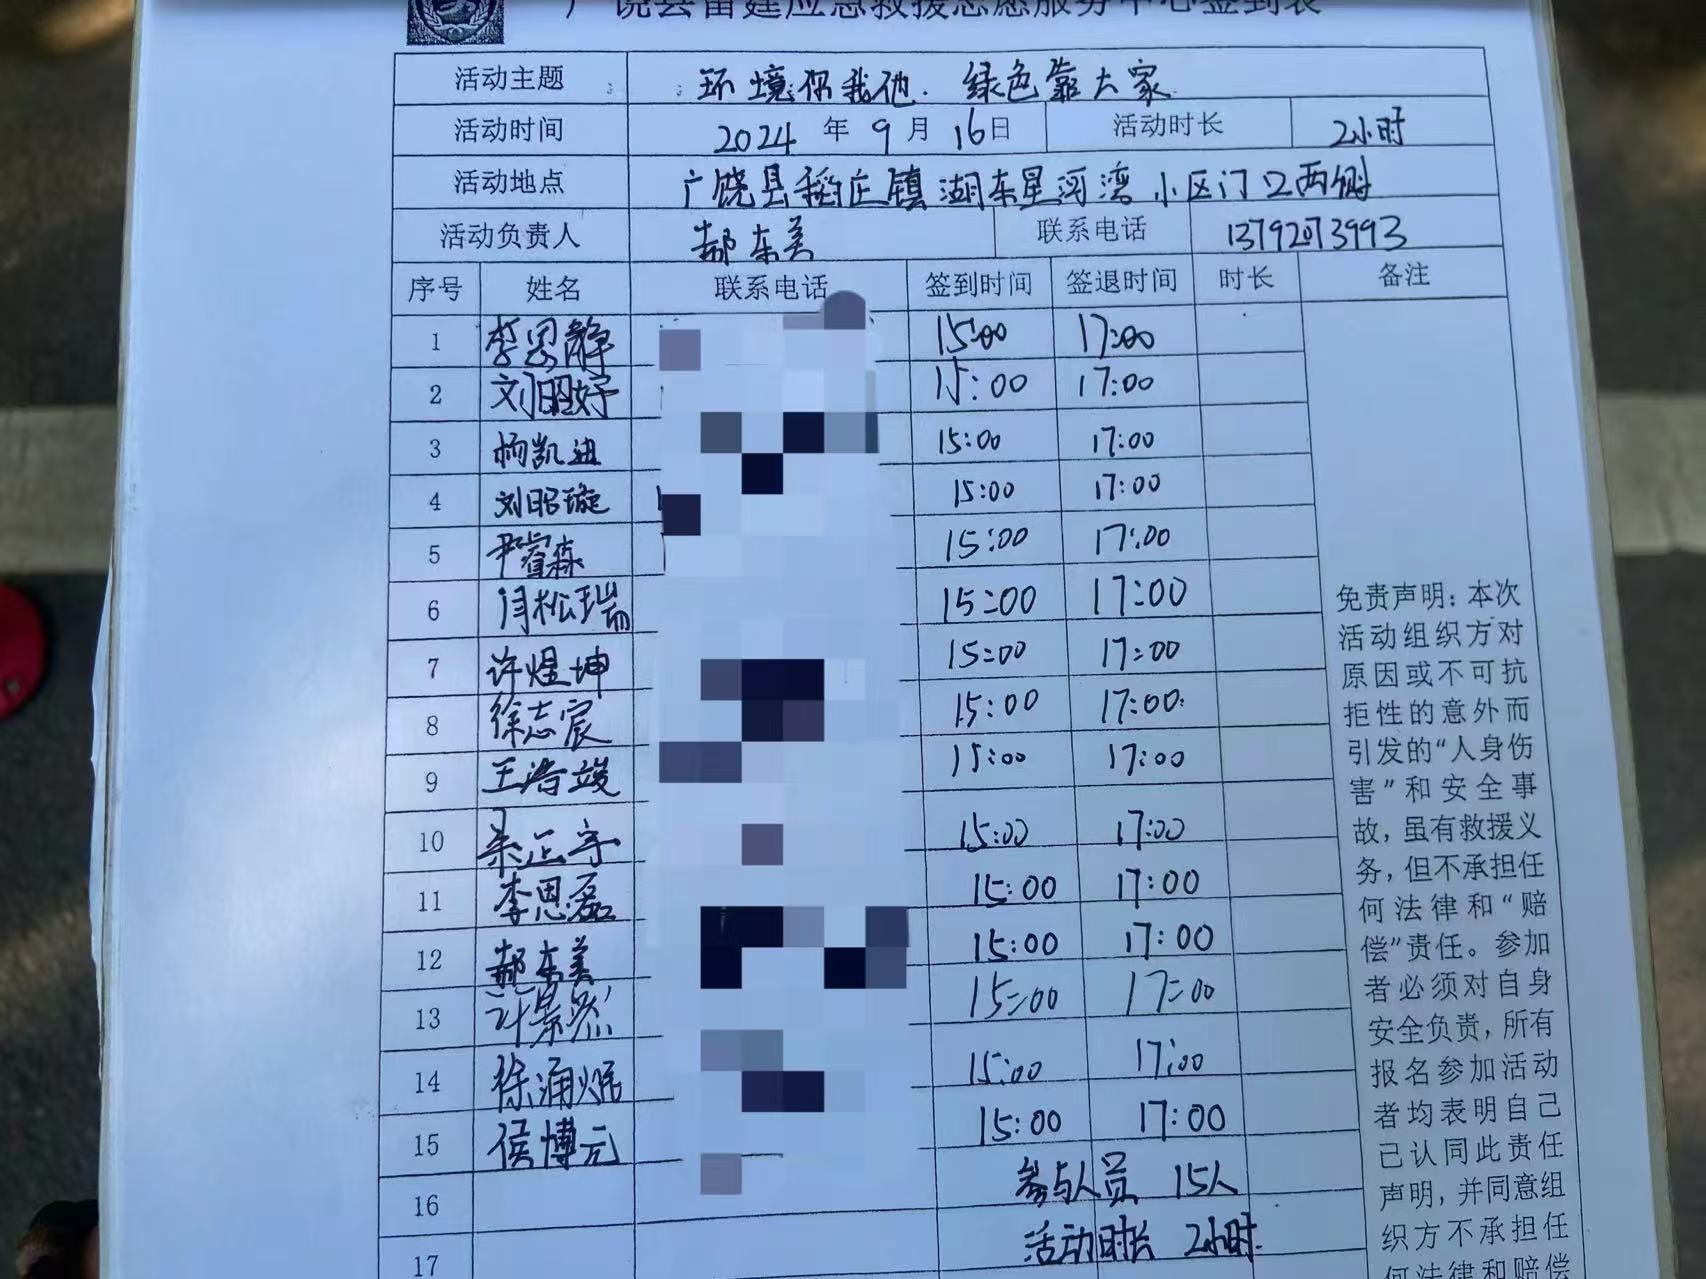 广饶县雷霆应急救援志愿服务中心签到表
活动主题 环境你我他.绿色靠大家
活动时间 2024年9月16日 活动时长 2小时
活动地点 广饶县稻庄镇湖东星河湾小区门口两侧
活动负责人 郝东美 联系电话 13792073993
序号 姓名 联系电话 签到时间 签退时间 时长 备注
1 李思静 15:00 17:00
2 刘昭妤 15:00 17:00
3 杨凯迪 15:00 17:00
4 刘昭璇 15:00 17:00
5 尹睿森 15:00 17:00
6 闫松瑞 15:00 17:00
7 许煜坤 15:00 17:00
8 徐志宸 15:00 17:00
9 王浩竣 15:00 17:00
10 正宇 15:00 17:00
11 李思磊 15:00 17:00
12 郝东美 15:00 17:00
13 15:00 17:00
14 徐涌焜 15:00 17:00
15 侯博元 15:00 17:00
16 参与人员 15人
17 活动时长 2小时.
免责声明：本次
活动组织方对
原因或不可抗
拒性的意外而
引发的“人身伤
害”和安全事
故，虽有救援义
务，但不承担任
何法律和“赔
偿”责任。参加
者必须对自身
安全负责，所有
报名参加活动
者均表明自己
已认同此责任
声明，并同意组
织方不承担任
何法律和赔偿